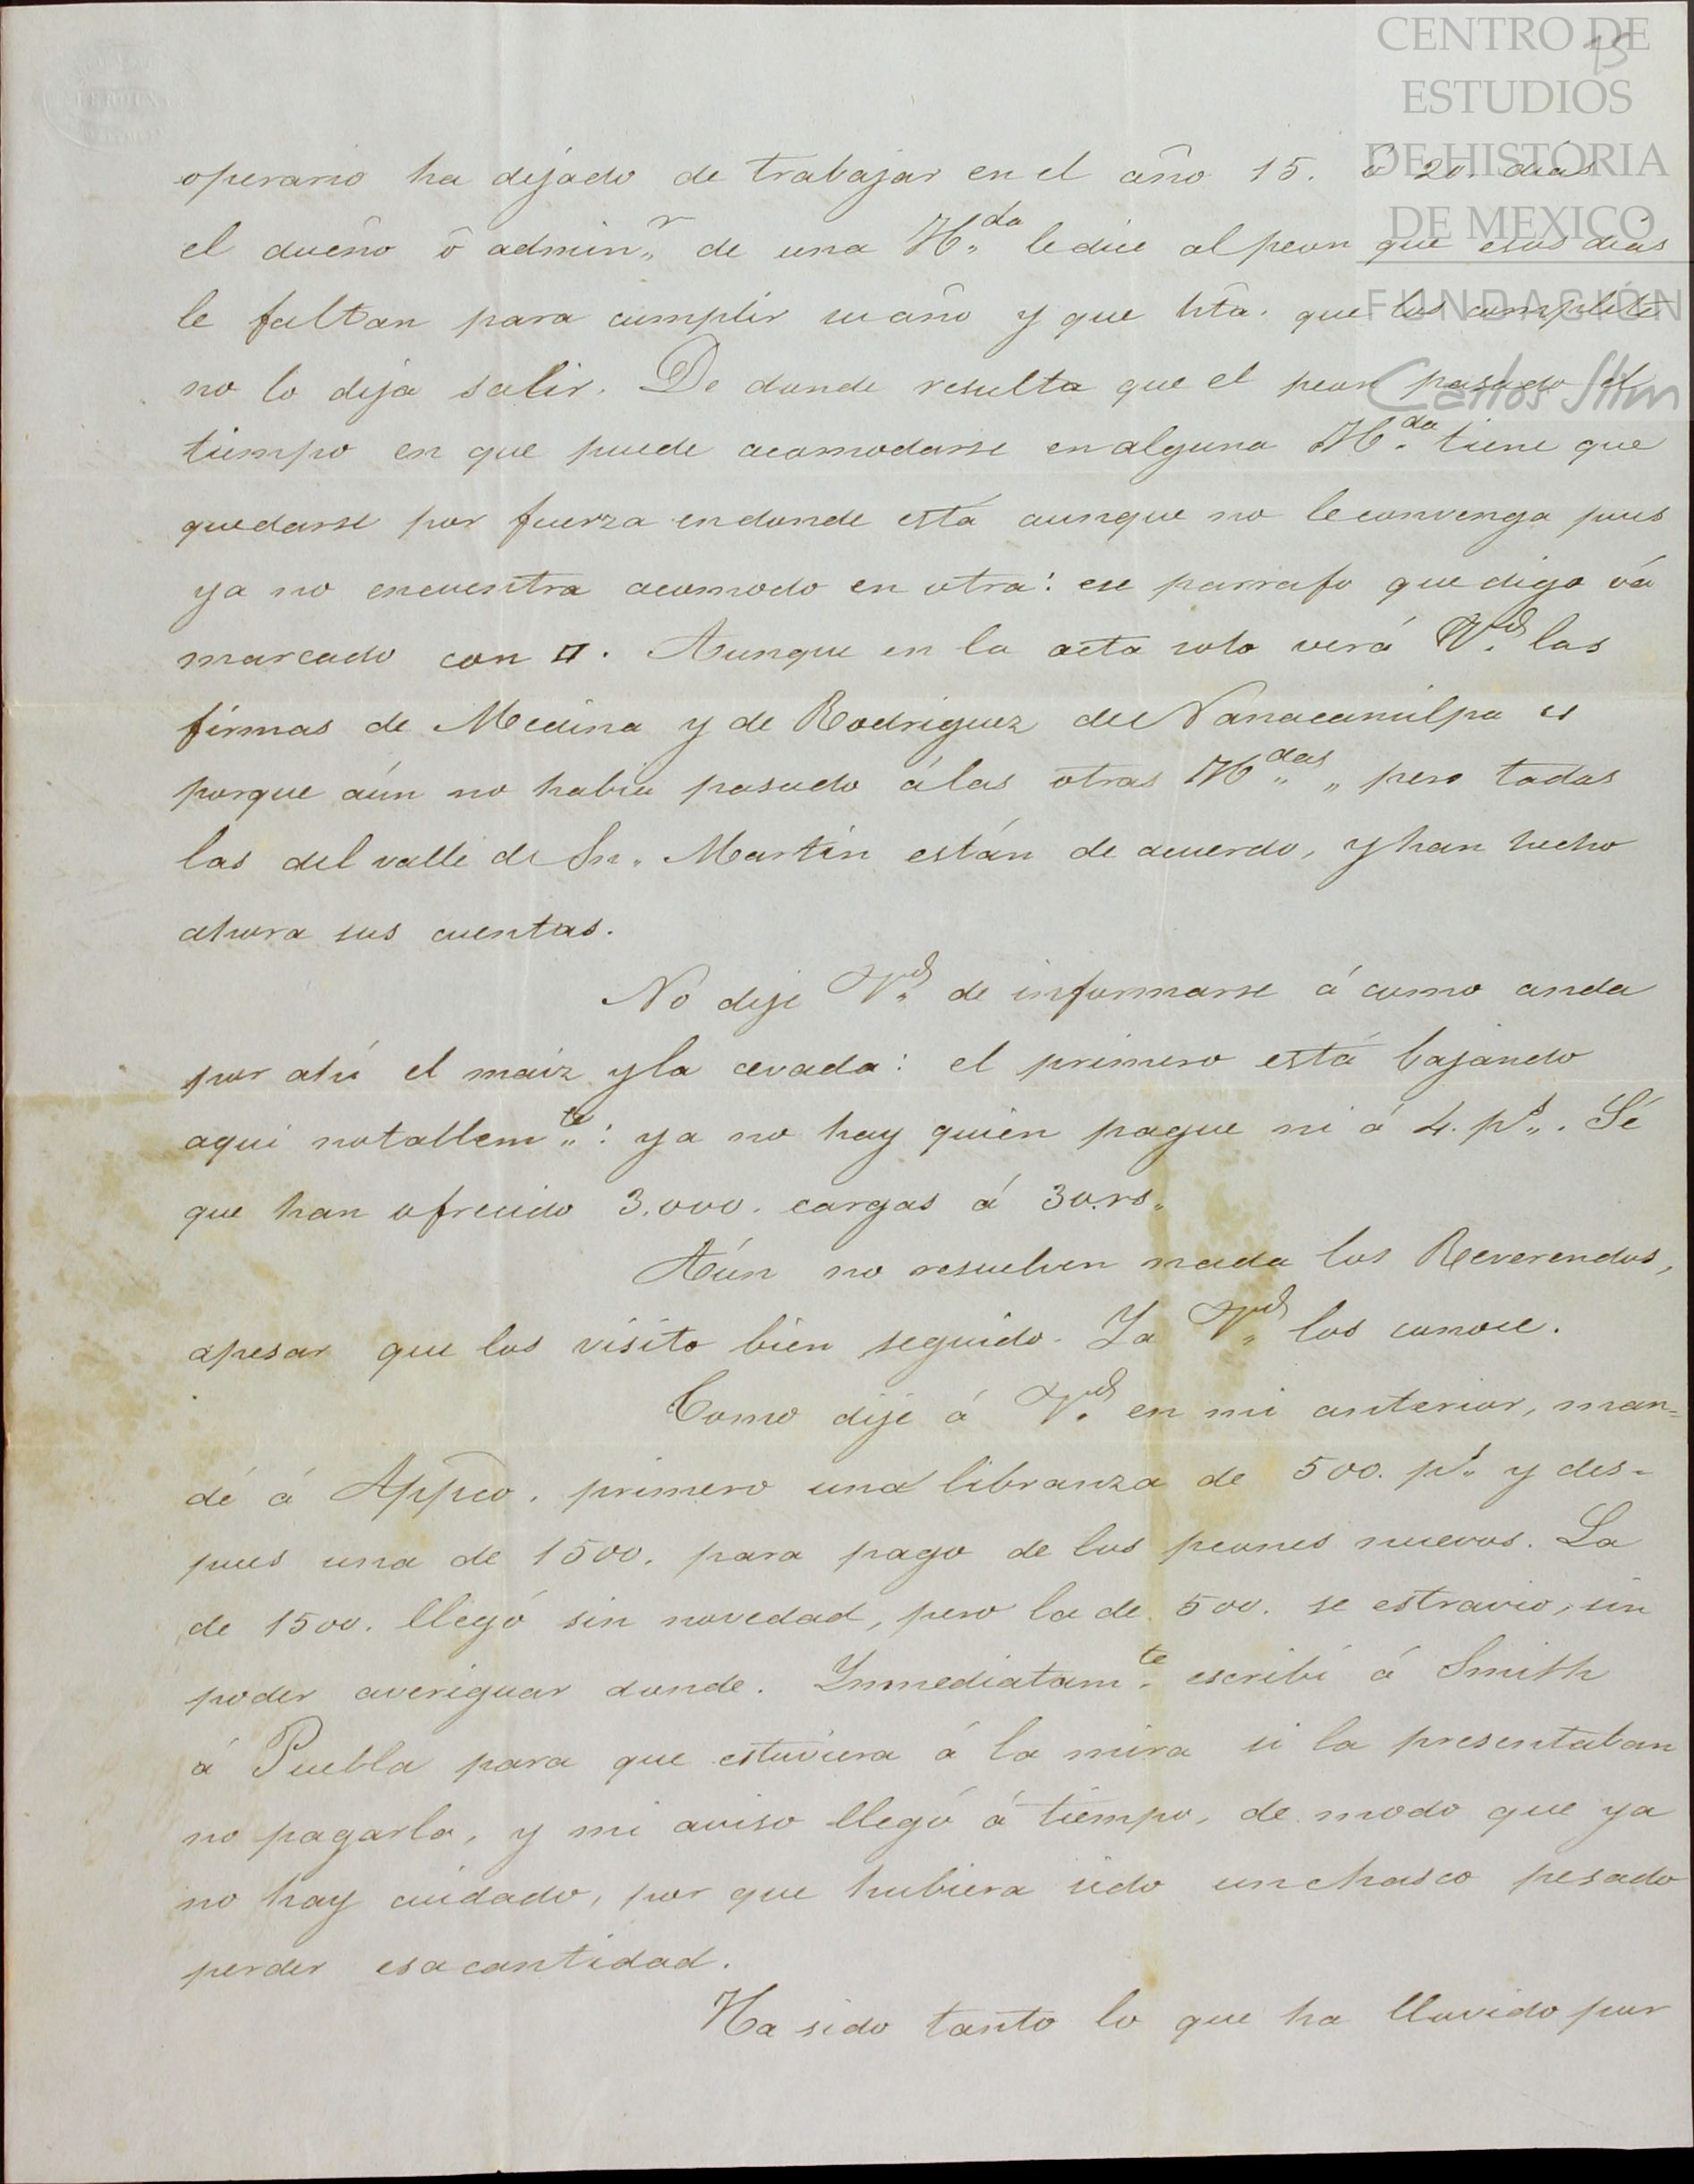 CENTRO DE
ESTUDIOS
DE HISTORIA
DE MEXICO
FUNDACIÓN
Carlos Slim
15
operario ha dejado de trabajar en el año 15. ó 20. dias
el dueño ó admin.r de una H.da le dice al peon que esos dias
le faltan para cumplir su año y que hta. que los complete
no lo deja salir. De donde resulta que el peon pasado el
tiempo en que puede acomodarse en alguna H.da tiene que
quedarse por fuerza en donde está aunque no le convenga pues
ya no encuentra acomodo en otra: ese parrafo que digo vá
marcado con □. Aunque en la acta solo verá V.d las
firmas de Medina y de Rodriguez de Nanacamilpa es
porque aún no habia pasado á las otras H.das, pero todas
las del valle de Sn. Martin están de acuerdo, y han hecho
ahora sus cuentas.
No deje V.d de informarse á como anda
por ahí el maiz y la cevada: el primero está bajando
aqui notablem.te: ya no hay quien pague ni á 4. p.s. Sé
que han ofrecido 3.000. cargas á 30. rs.
Aún no resuelven nada los Reverendos,
apesar que los visito bien seguido. Ya V.d los conoce.
Como dije á V.d en mi anterior, man=
dé á Appco. primero una libranza de 500. p.s y des-
pues una de 1500. para pago de los peones nuevos. La
de 1500. llegó sin novedad, pero la de 500. se estravio, sin
poder averiguar donde. Inmediatam.te escribí á Smith
á Puebla para que estuviera á la mira si la presentaban
no pagarla, y mi aviso llegó á tiempo, de modo que ya
no hay cuidado, por que hubiera sido un chasco pesado
perder esa cantidad.
Ha sido tanto lo que ha llovido por